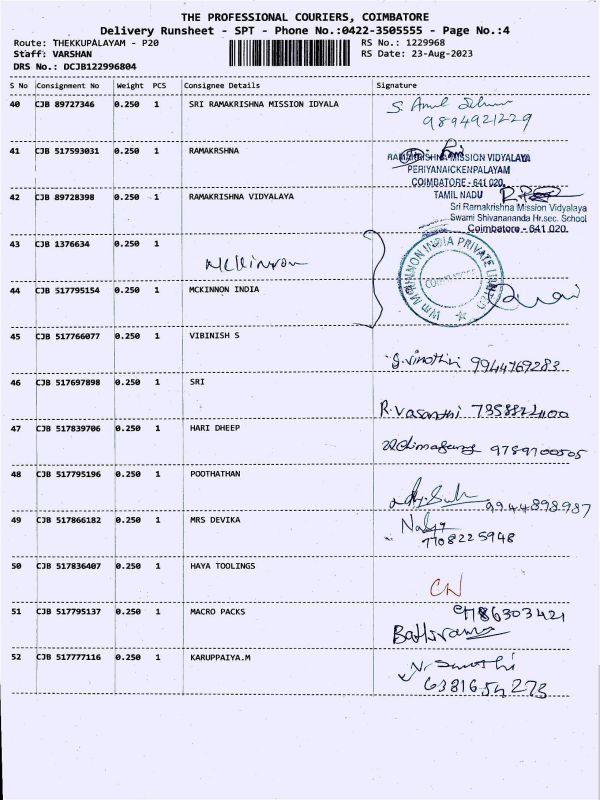 THE PROFESSIONAL COURIERS, COIMBATORE
Delivery Runsheet - SPT - Phone No.:0422-3505555 - Page No.:4
Route: THEKKUPALAYAM - P20
RS No.: 1229968
Staff: VARSHAN
RS Date: 23-Aug-2023
DRS No.: DCJB122996804
S No Consignment No Weight PCS Consignee Details Signature
40 CJB 89727346 0.250 1 SRI RAMAKRISHNA MISSION IDYALA
9894921229
41 CJB 517593031 0.250 1 RAMAKRSHNA
RAMAKRISHNA MISSION VIDYALAYA
PERIYANAICKENPALAYAM
COIMBATORE - 641 020.
TAMIL NADU
42 CJB 89728398 0.250 1 RAMAKRISHNA VIDYALAYA
Sri Ramakrishna Mission Vidyalaya
Swami Shivanananda Hr.sec. School
Coimbatore - 641 020.
43 CJB 1376634 0.250 1
Mckinnon
44 CJB 517795154 0.250 1 MCKINNON INDIA
Wm MCKINNON INDIA PRIVATE LIMITED
COIMBATORE
45 CJB 517766077 0.250 1 VIBINISH S
g.vinothini 9944769283
46 CJB 517697898 0.250 1 SRI
R.vasanthi
47 CJB 517839706 0.250 1 HARI DHEEP
9789700505
48 CJB 517795196 0.250 1 POOTHATHAN
9944898987
49 CJB 517866182 0.250 1 MRS DEVIKA
7708225948
50 CJB 517836407 0.250 1 HAYA TOOLINGS
CN
51 CJB 517795137 0.250 1 MACRO PACKS
52 CJB 517777116 0.250 1 KARUPPAIYA.M
6381654273